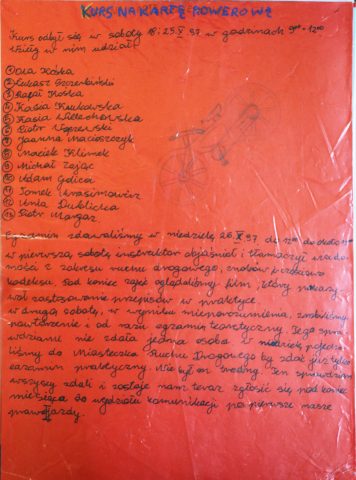 KURS NA KARTĘ ROWEROWĄ
Kurs odbył się w soboty 18 i 25.X.97 w godzinach 9⁰⁰-12⁰⁰
Wzięły w nim udział:
① Ola Kośka
② Łukasz Szczerbiński
③ Rafał Kośka
④ Kasia Krukowska
⑤ Kasia
⑥ Piotr
⑦ Joanna Macioszczyk
⑧ Maciek Klimek
⑨ Michał Zając
⑩ Adam Golica
⑪ Tomek
⑫ Ania Dublicka
⑬ Piotr Margas
Egzamin zdawaliśmy w niedzielę 26.X.97. do 12⁰⁰
w pierwszą sobotę instruktor objaśniał i tłumaczył wiado-
mości z zakresu ruchu drogowego, znaków i
kodeksu. Pod koniec zajęć oglądaliśmy film, który pokazy-
wał zastosowanie przepisów w praktyce.
W drugą sobotę, w wyniku nieporozumienia, zrobiliśmy
powtórzenie i od razu egzamin teoretyczny. Tego spraw-
dzianu nie zdała jedna osoba w niedzielę pojecha-
liśmy do Miasteczka Ruchu Drogowego by zdać już tylko
egzamin praktyczny. Nie był on trudny. Ten sprawdzian
wszyscy zdali i zostaje nam teraz zgłosić się pod koniec
miesiąca do wydziału komunikacji po pierwsze nasze
prawo jazdy.